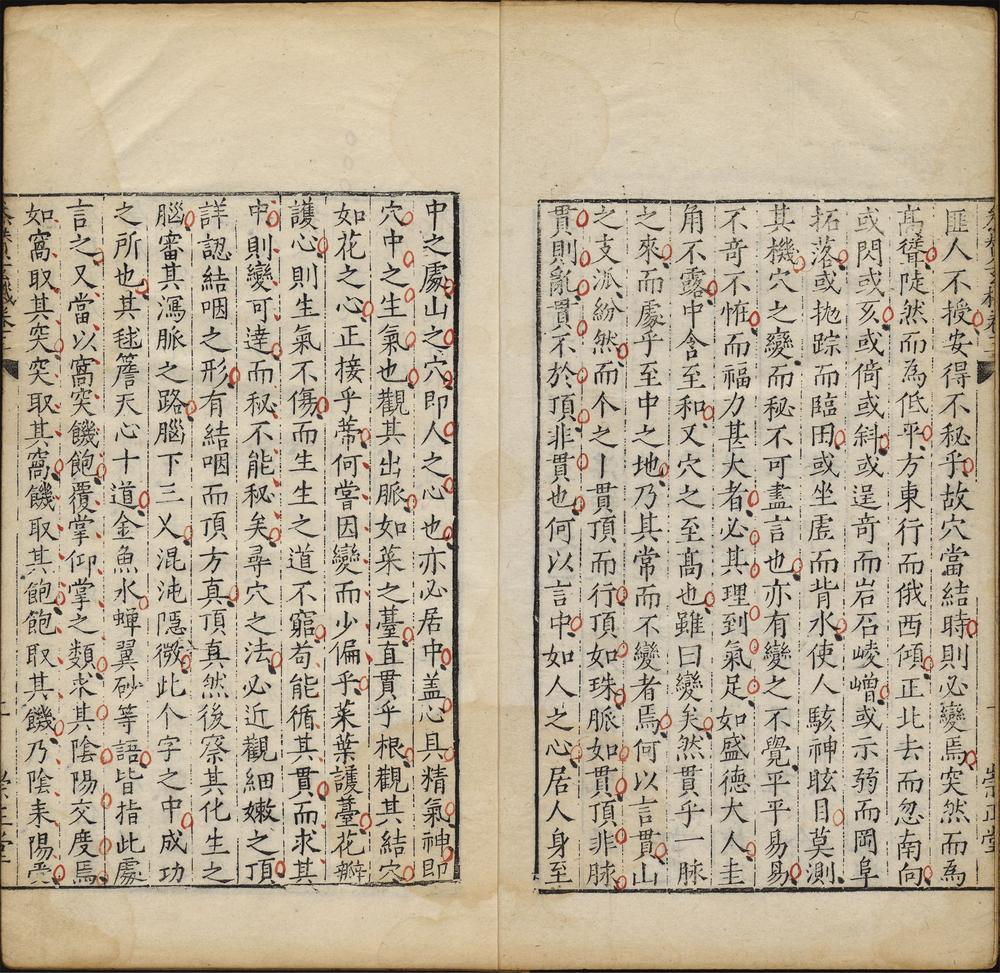 匪人不授安得不秘乎故穴當結時則必變焉突然而為
髙聳陡然而為低平方東行而俄西傾正北去而忽南向
或閃或亥或倚或斜或逞奇而岩石崚嶒或示弱而岡阜
拓落或抛踪而臨田或坐虛而背水使人駭神眩目莫測
其機穴之變而秘不可盡言也亦有變之不覺平平易易
不奇不恠而福力甚大者必其理到氣足如盛德大人圭
角不露中含至和又穴之至髙也雖曰變矣然貫乎一脉
之來而處乎至中之地乃其常而不變者焉何以言貫山
之支派紛然而个之丨貫頂而行頂如珠脈如貫頂非脉
貫則亂貫不於頂非貫也何以言中如人之心居人身至
中之處山之穴即人之心也亦必居中盖心具精氣神即
穴中之生氣也觀其出脈如菜之薹直貫乎根觀其結穴
如花之心正接乎蒂何嘗因變而少偏乎菜葉護薹花瓣
護心則生氣不傷而生生之道不窮苟能循其貫而求其
中則變可達而秘不能秘矣尋穴之法必近觀細嫩之頂
詳認結咽之形有結咽而頂方真頂真然後察其化生之
腦審其瀉脈之路腦下三叉混沌隱微此个字之中成功
之所也其毬簷天心十道金魚水蟬翼砂等語皆指此處
言之又當以窩突饑飽覆掌仰掌之類求其陰陽交度焉
如窩取其突突取其窩饑取其飽飽取其饑乃陰来陽受